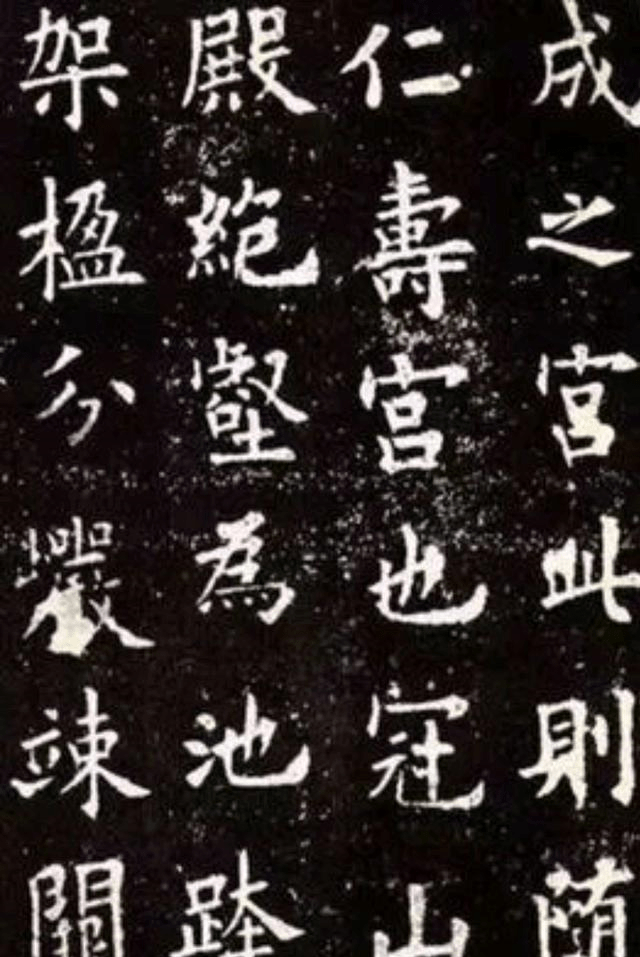 成之宮此則随
仁壽宮也冠山
殿絶壑為池跨
架楹分巖竦闕